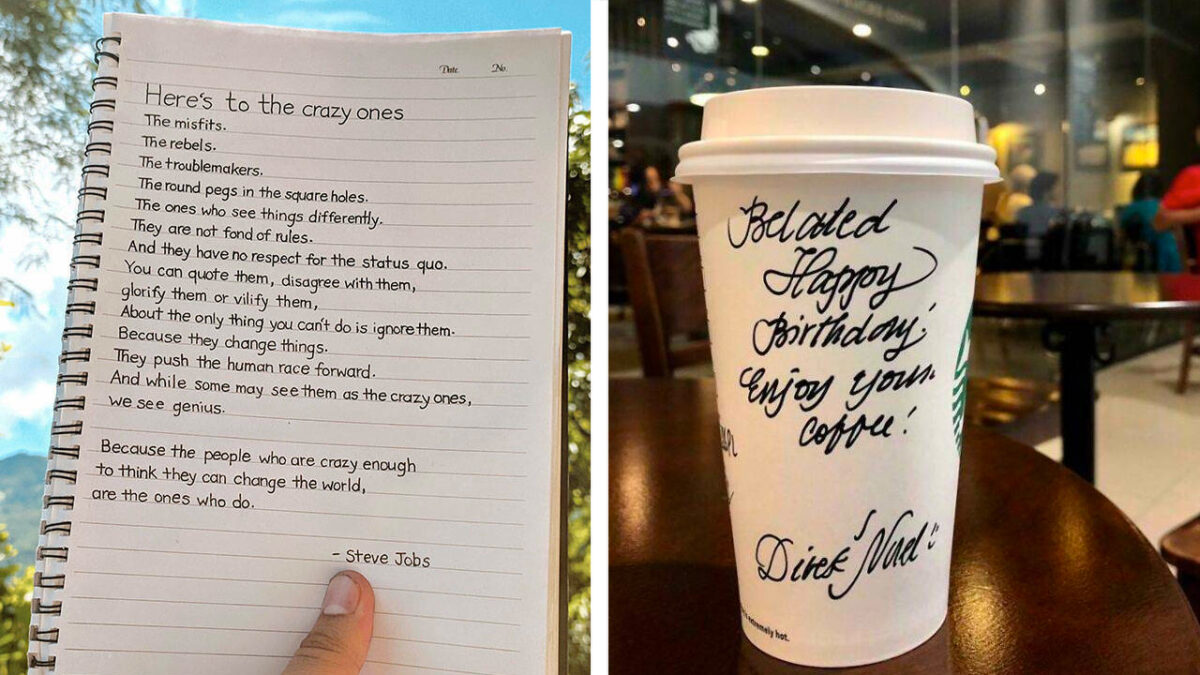 Date. No.
Here's to the crazy ones
The misfits.
The rebels.
The troublemakers.
The round pegs in the square holes.
The ones who see things differently.
They are not fond of rules.
And they have no respect for the status quo.
You can quote them, disagree with them,
glorify them or vilify them,
About the only thing you can't do is ignore them.
Because they change things.
They push the human race forward.
And while some may see them as the crazy ones,
we see genius.
Because the people who are crazy enough
to think they can change the world,
are the ones who do.
- Steve Jobs
Belated
Happy
Birthday!
Enjoy your
coffee!
extremely hot.